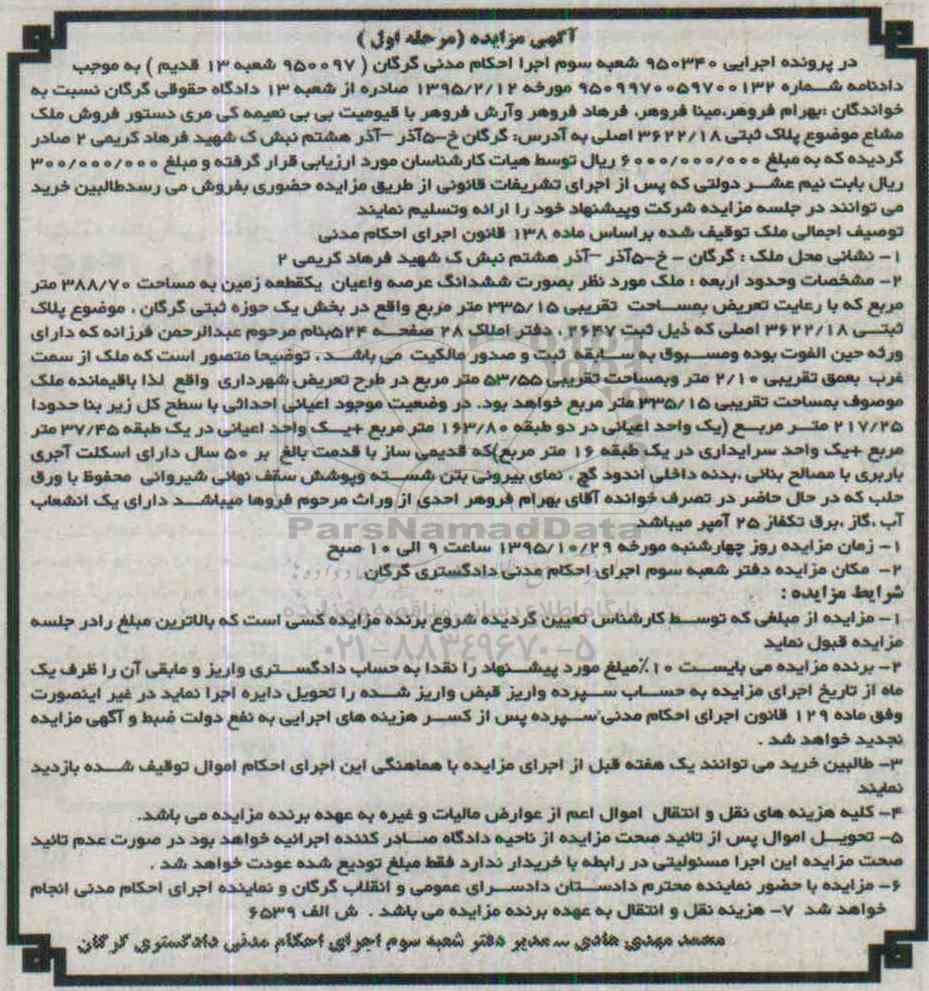 آگهی مزایده (مرحله اول)
در پرونده اجرایی ۹۵۰۳۴۰ شعبه سوم اجرا احکام مدنی گرگان ( ۹۵۰۰۹۷ شعبه ۱۳ قدیم ) به موجب
دادنامه شماره ۹۵۰۹۹۷۰۰۵۹۷۰۰۱۳۲ مورخه ۱۳۹۵/۲/۱۲ صادره از شعبه ۱۳ دادگاه حقوقی گرگان نسبت به
خواندگان :بهرام فروهر،مینا فروهر، فرهاد فروهر وآرش فروهر با قیومیت بی بی نعیمه کی مری دستور فروش ملک
مشاع موضوع پلاک ثبتی ۳۶۲۲/۱۸ اصلی به آدرس: گرگان خ-۵آذر –آذر هشتم نبش ک شهید فرهاد کریمی ۲ صادر
گردیده که به مبلغ ۶۰۰۰/۰۰۰/۰۰۰ ریال توسط هیات کارشناسان مورد ارزیابی قرار گرفته و مبلغ ۳۰۰/۰۰۰/۰۰۰
ریال بابت نیم عشر دولتی که پس از اجرای تشریفات قانونی از طریق مزایده حضوری بفروش می رسدطالبین خرید
می توانند در جلسه مزایده شرکت وپیشنهاد خود را ارائه وتسلیم نمایند
توصیف اجمالی ملک توقیف شده براساس ماده ۱۳۸ قانون اجرای احکام مدنی
۱- نشانی محل ملک : گرگان – خ-۵آذر –آذر هشتم نبش ک شهید فرهاد کریمی ۲
۲- مشخصات وحدود اربعه : ملک مورد نظر بصورت ششدانگ عرصه واعیان یکقطعه زمین به مساحت ۳۸۸/۷۰ متر
مربع که با رعایت تعریض بمساحت تقریبی ۳۳۵/۱۵ متر مربع واقع در بخش یک حوزه ثبتی گرگان ، موضوع پلاک
ثبتی ۳۶۲۲/۱۸ اصلی که ذیل ثبت ۲۶۴۷ ، دفتر املاک ۲۸ صفحه ۵۲۴بنام مرحوم عبدالرحمن فرزانه که دارای
ورثه حین الفوت بوده ومسبوق به سابقه ثبت و صدور مالکیت می باشد ، توضیحا متصور است که ملک از سمت
غرب بعمق تقریبی ۲/۱۰ متر وبمساحت تقریبی ۵۳/۵۵ متر مربع در طرح تعریض شهرداری واقع لذا باقیمانده ملک
موصوف بمساحت تقریبی ۳۳۵/۱۵ متر مربع خواهد بود. در وضعیت موجود اعیانی احداثی با سطح کل زیر بنا حدودا
۲۱۷/۲۵ متر مربع (یک واحد اعیانی در دو طبقه ۱۶۳/۸۰ متر مربع +یک واحد اعیانی در یک طبقه ۳۷/۴۵ متر
مربع +یک واحد سرایداری در یک طبقه ۱۶ متر مربع)که قدیمی ساز با قدمت بالغ بر ۵۰ سال دارای اسکلت آجری
باربری با مصالح بنائی ،بدنه داخلی اندود گچ ، نمای بیرونی بتن شسته وپوشش سقف نهائی شیروانی محفوظ با ورق
حلب که در حال حاضر در تصرف خوانده آقای بهرام فروهر احدی از وراث مرحوم فروها میباشد دارای یک انشعاب
آب ،گاز ،برق تکفاز ۲۵ آمپر میباشد
۱- زمان مزایده روز چهارشنبه مورخه ۱۳۹۵/۱۰/۲۹ ساعت ۹ الی ۱۰ صبح
۲- مکان مزایده دفتر شعبه سوم اجرای احکام مدنی دادگستری گرگان
شرایط مزایده :
۱- مزایده از مبلغی که توسط کارشناس تعیین گردیده شروع برنده مزایده کسی است که بالاترین مبلغ رادر جلسه
مزایده قبول نماید
۲- برنده مزایده می بایست ۱۰٪مبلغ مورد پیشنهاد را نقدا به حساب دادگستری واریز و مابقی آن را ظرف یک
ماه از تاریخ اجرای مزایده به حساب سپرده واریز قبض واریز شده را تحویل دایره اجرا نماید در غیر اینصورت
وفق ماده ۱۲۹ قانون اجرای احکام مدنی سپرده پس از کسر هزینه های اجرایی به نفع دولت ضبط و آگهی مزایده
تجدید خواهد شد .
۳- طالبین خرید می توانند یک هفته قبل از اجرای مزایده با هماهنگی این اجرای احکام اموال توقیف شده بازدید
نمایند
۴- کلیه هزینه های نقل و انتقال اموال اعم از عوارض مالیات و غیره به عهده برنده مزایده می باشد.
۵- تحویل اموال پس از تائید صحت مزایده از ناحیه دادگاه صادر کننده اجرائیه خواهد بود در صورت عدم تائید
صحت مزایده این اجرا مسئولیتی در رابطه با خریدار ندارد فقط مبلغ تودیع شده عودت خواهد شد .
۶- مزایده با حضور نماینده محترم دادستان دادسرای عمومی و انقلاب گرگان و نماینده اجرای احکام مدنی انجام
خواهد شد ۷- هزینه نقل و انتقال به عهده برنده مزایده می باشد . ش الف ۶۵۳۹
محمد مهدی هادی – مدیر دفتر شعبه سوم اجرای احکام مدنی دادگستری گرگان
ParsNamadData
پایگاه اطلاع رسانی مناقصه و مزایده
۰۲۱-۸۸۳۴۹۶۷۰-۵